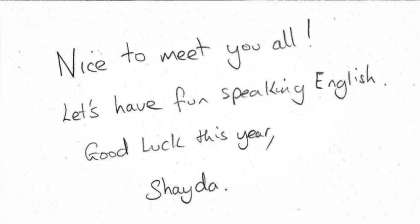 Nice to meet you all!
Let's have fun speaking English.
Good Luck this year,
Shayda.